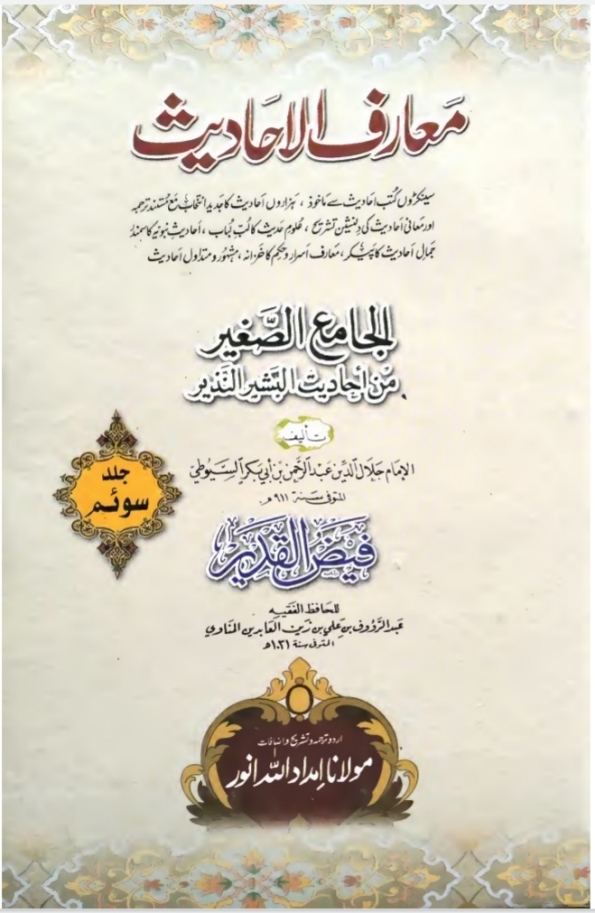 معارف الاحادیث
سینکڑوں کتب احادیث سے ماخوذ، ہزاروں احادیث کا جدید انتخاب مع مستند ترجمہ
اور معانی احادیث کی دلنشین تشریح، علوم حدیث کا لب لباب، احادیث نبویہ کا سمندر
جمالِ احادیث کا پیکر، معارف اسرار و حکم کا خزانہ، مشہور و متداول احادیث
الجامع الصَّغیر
من أحادیث البشیر النذیر
تألیف
الإمام جلال الدین عبد الرحمن بن أبي بکر السیوطي
المتوفی سنہ ۹۱۱ھ
جلد
سوئم
فیض القدیر
للحافظ الفقیہ
عبد الرؤوف بن علي بن زین العابدین المناوي
المتوفی سنة ۱۰۳۱ھ
اردو ترجمہ و تشریح و اضافات
مولانا امداد اللہ انور